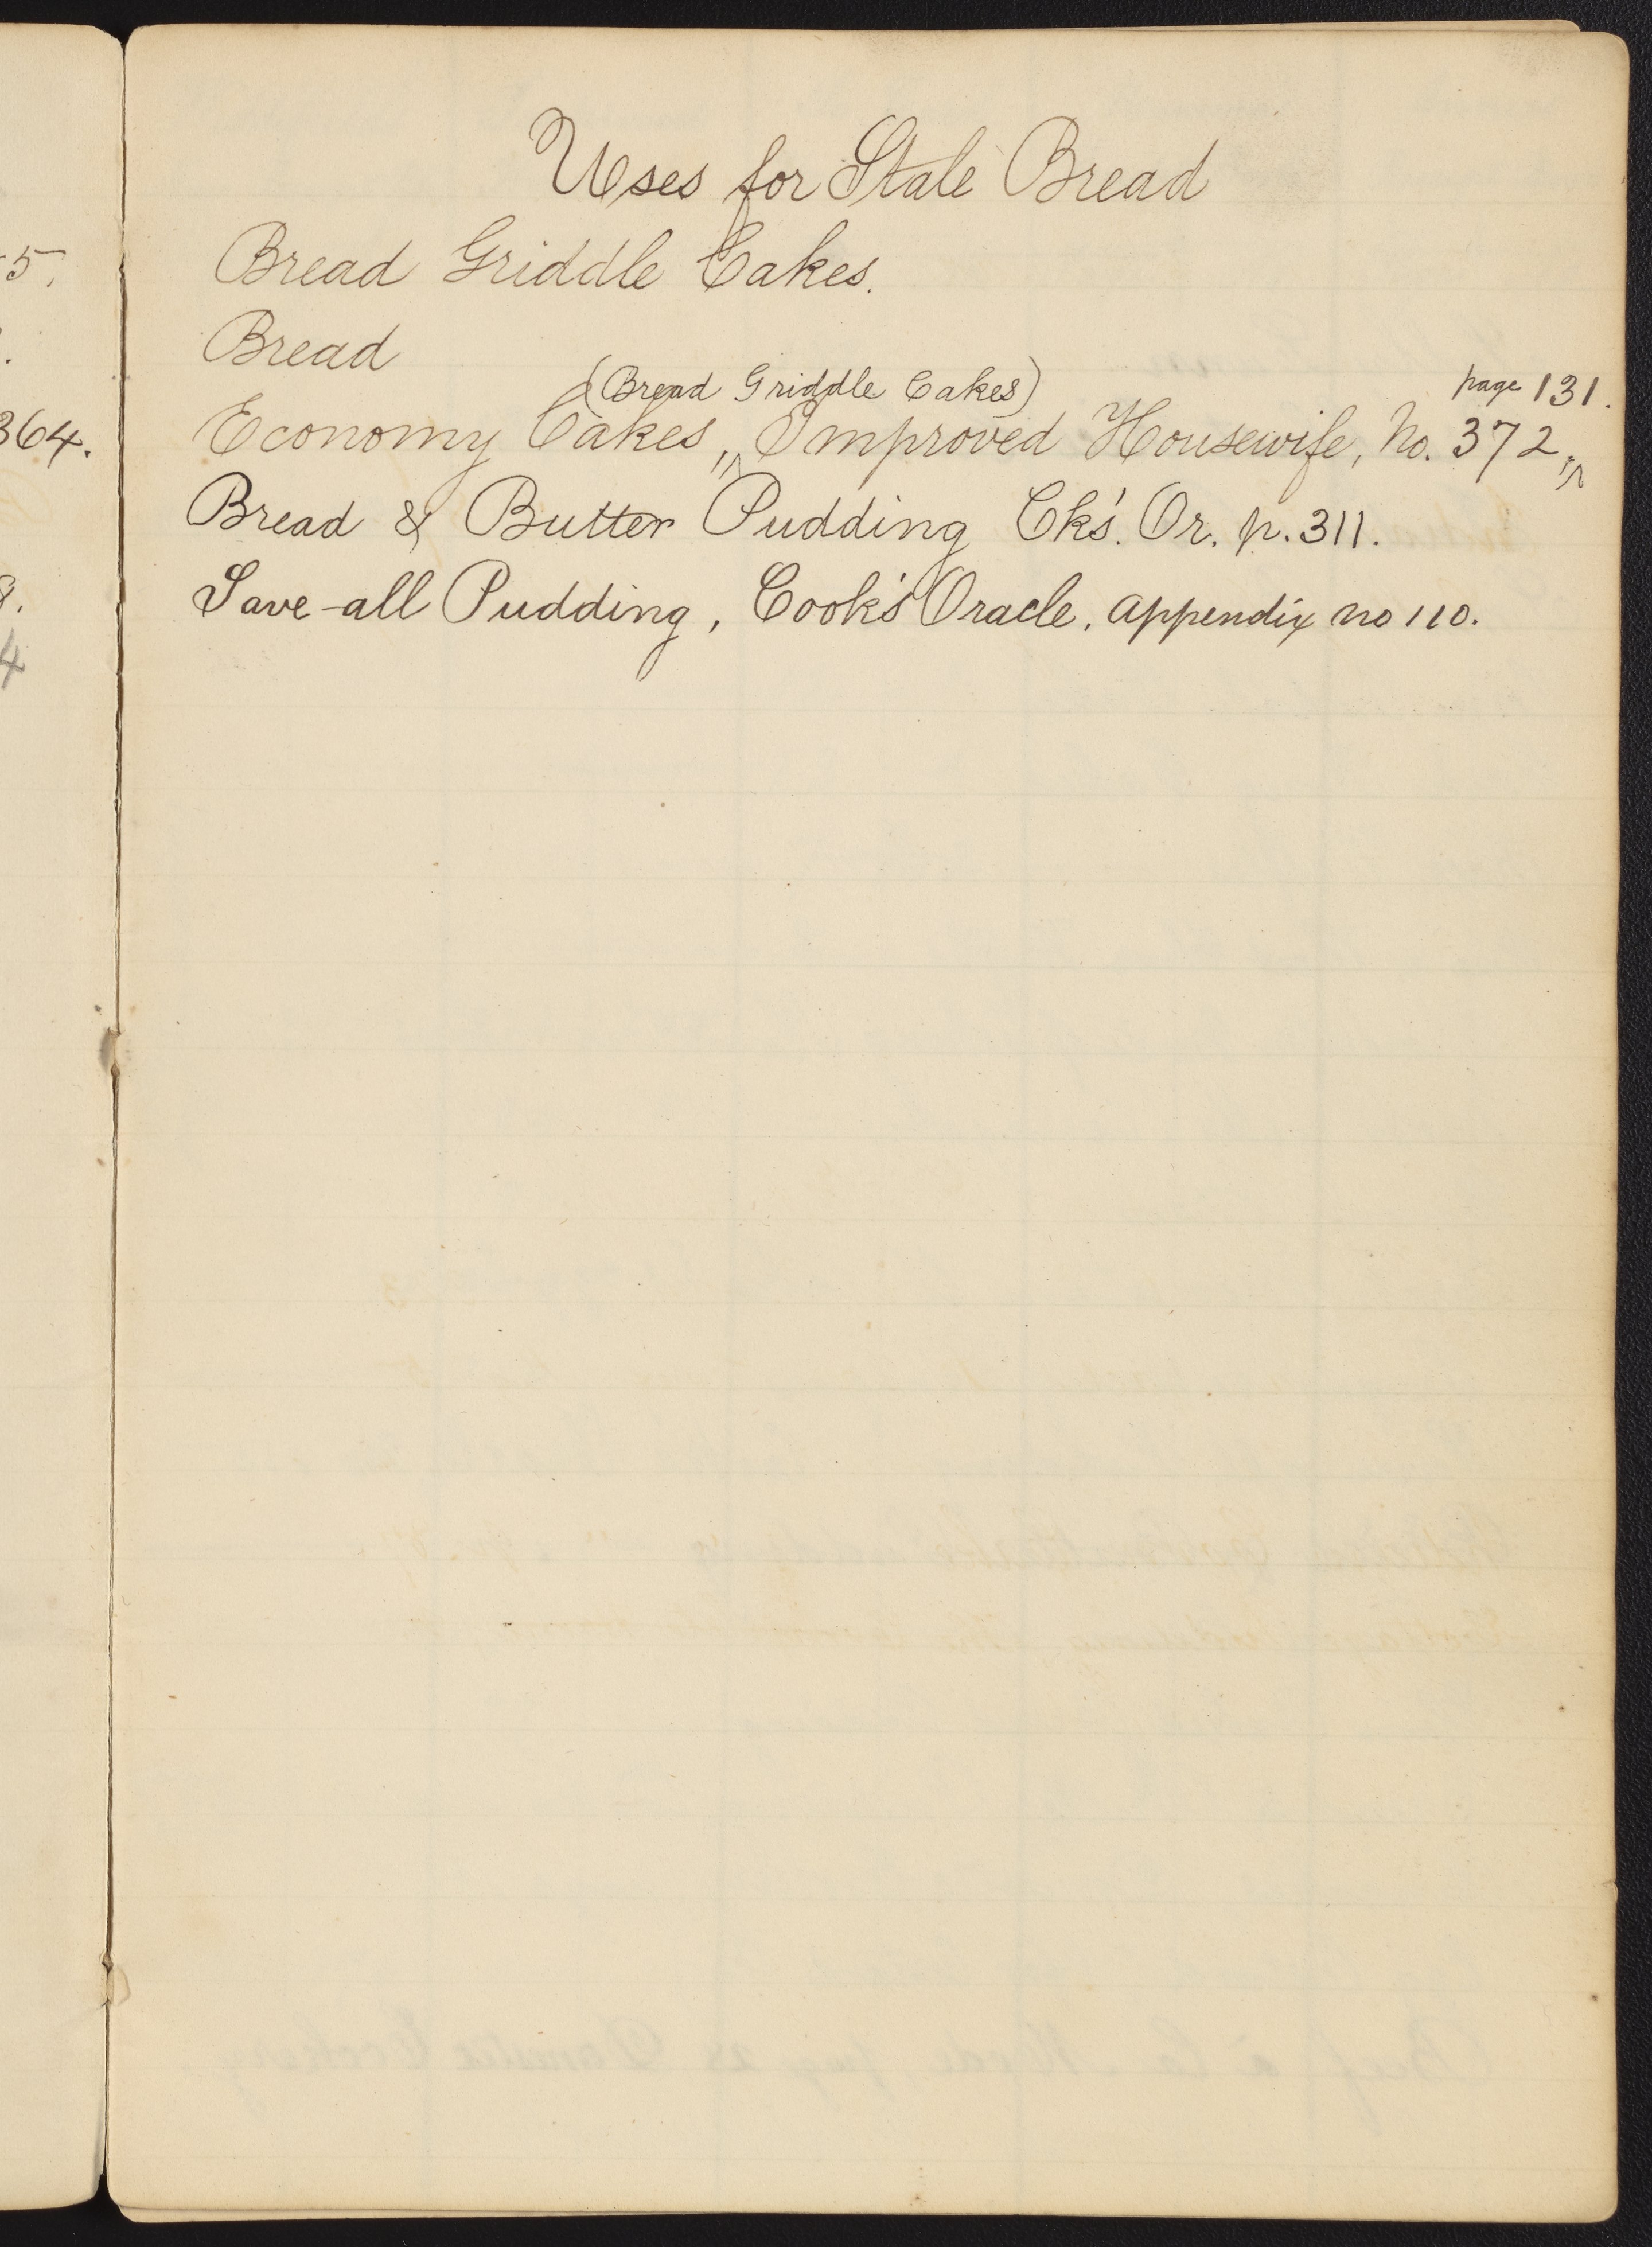 Uses for Stale Bread
5.
Bread Griddle Cakes.
Bread
(Bread Griddle Cakes) page 131.
364.
Economy Cakes, Improved Housewife, No. 372,
Bread & Butter Pudding Ck's. Or. p. 311.
Save-all Pudding, Cook's Oracle, appendix no 110.
4